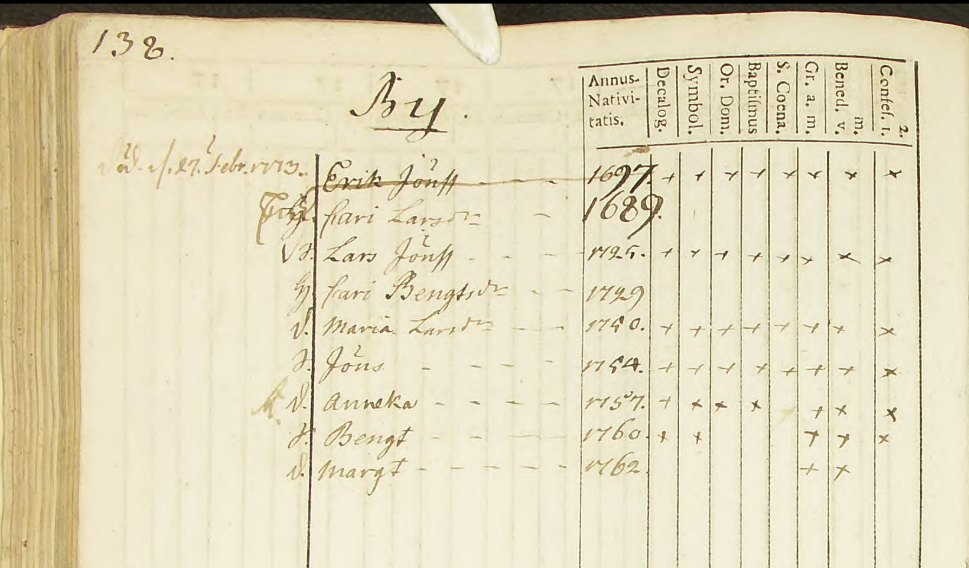 138.
By.
Annus Nativitatis. Decalog. Symbol. Or. Dom. Baptismus S. Coena. Gr. a. m. Bened. v. m. Confes. 1. 2.
Död. d. 27. Febr. 1773. Erik Jönss - - - 1697. + + + + + + + +
Cari Larsdr - 1689.
S. Lars Jönss - - - 1725. + + + + + + + +
H Cari Bengtsdr - - 1729
d. Maria Larsdr - - 1750. + + + + + + + +
S. Jöns - - - - 1754. + + + + + + + +
d. Anneka - - - - 1757. + + + + + + +
S. Bengt - - - 1760. + + + + +
d. Margt - - - - - 1762. + +